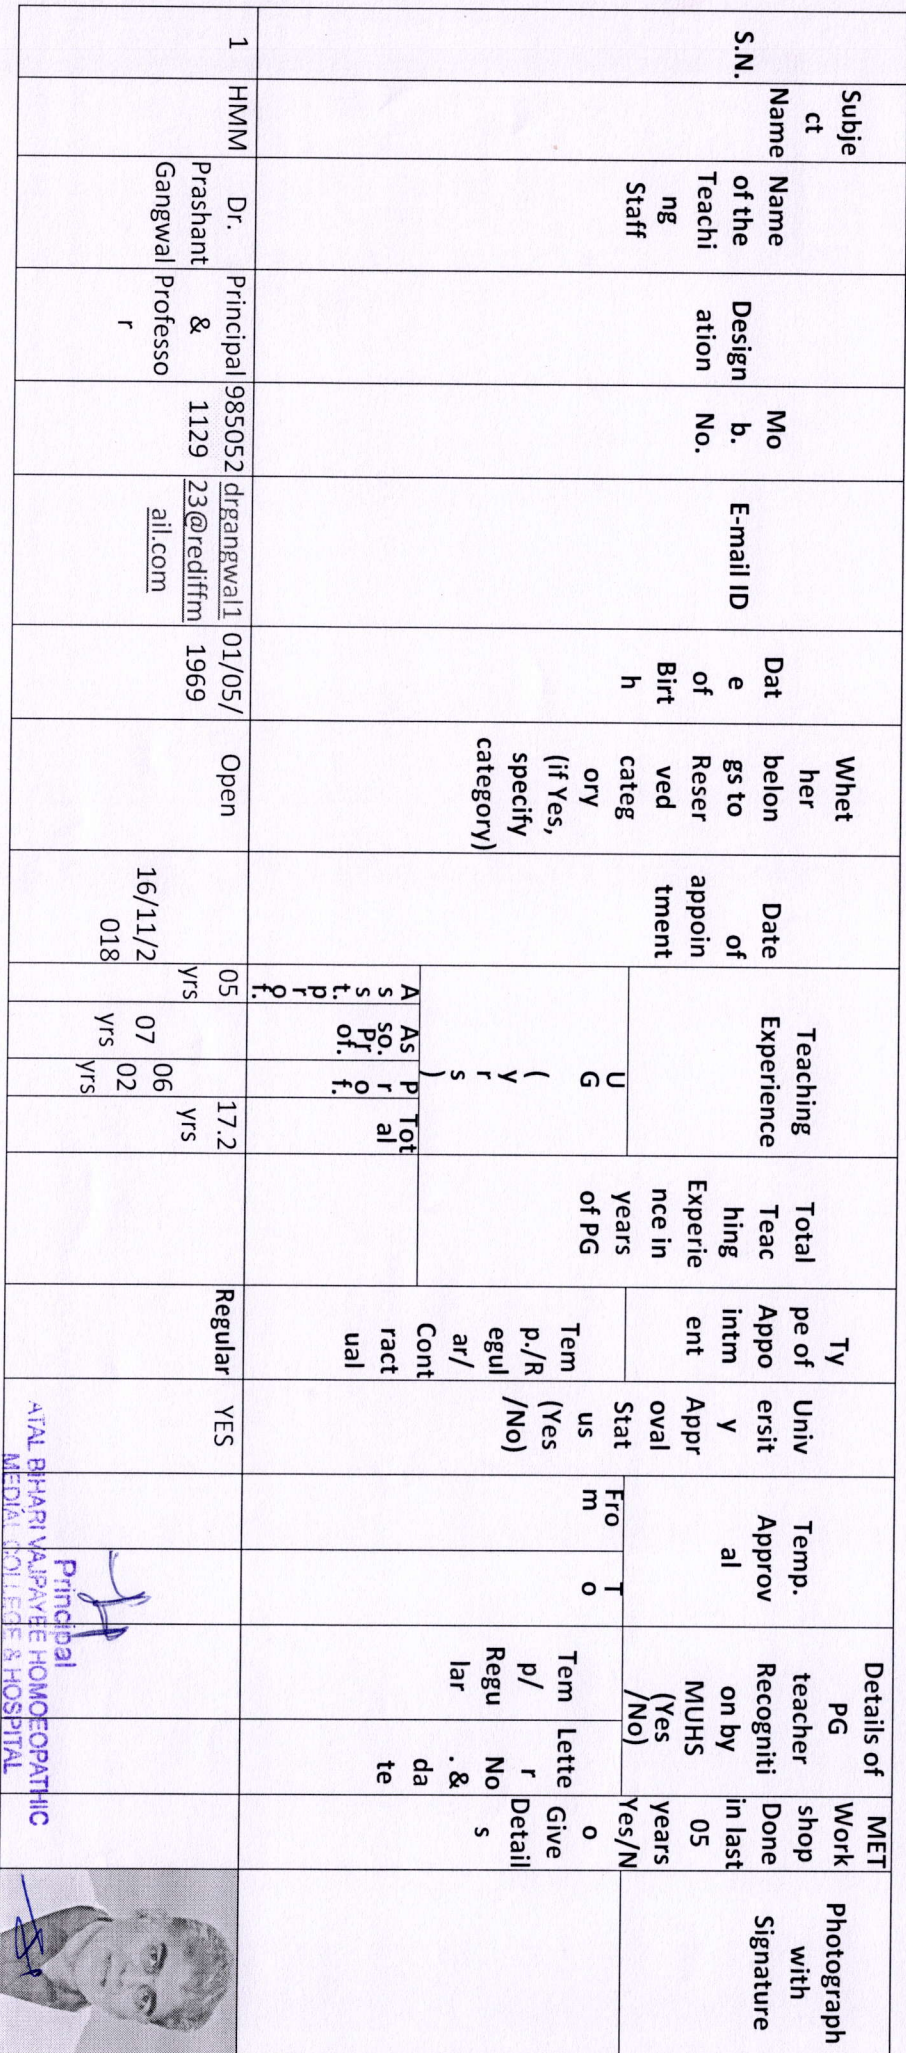 S.N.
Subje
ct
Name
Name
of the
Teachi
ng
Staff
Design
ation
Mo
b.
No.
E-mail ID
Dat
e
of
Birt
h
Whet
her
belon
gs to
Reser
ved
categ
ory
(if Yes,
specify
category)
Date
of
appoin
tment
Teaching
Experience
U
G
(
y
r
s
)
A
s
s
t.
p
r
o
f.
As
so.
Pr
of.
P
r
o
f.
Tot
al
Total
Teac
hing
Experie
nce in
years
of PG
Ty
pe of
Appo
intm
ent
Tem
p./R
egul
ar/
Cont
ract
ual
Univ
ersit
y
Appr
oval
Stat
us
(Yes
/No)
Temp.
Approv
al
Fro
m
T
o
Details of
PG
teacher
Recogniti
on by
MUHS
(Yes
/No)
Tem
p/
Regu
lar
Lette
r
No
. &
da
te
MET
Work
shop
Done
in last
05
years
Yes/N
o
Give
Detail
s
Photograph
with
Signature
1
HMM
Dr.
Prashant
Gangwal
Principal
&
Professo
r
985052
1129
drgangwal1
23@rediffm
ail.com
01/05/
1969
Open
16/11/2
018
05
yrs
07
yrs
06
02
yrs
17.2
yrs
Regular
YES
Principal
ATAL BIHARI VAJPAYEE HOMOEOPATHIC
MEDIAL COLLEGE & HOSPITAL